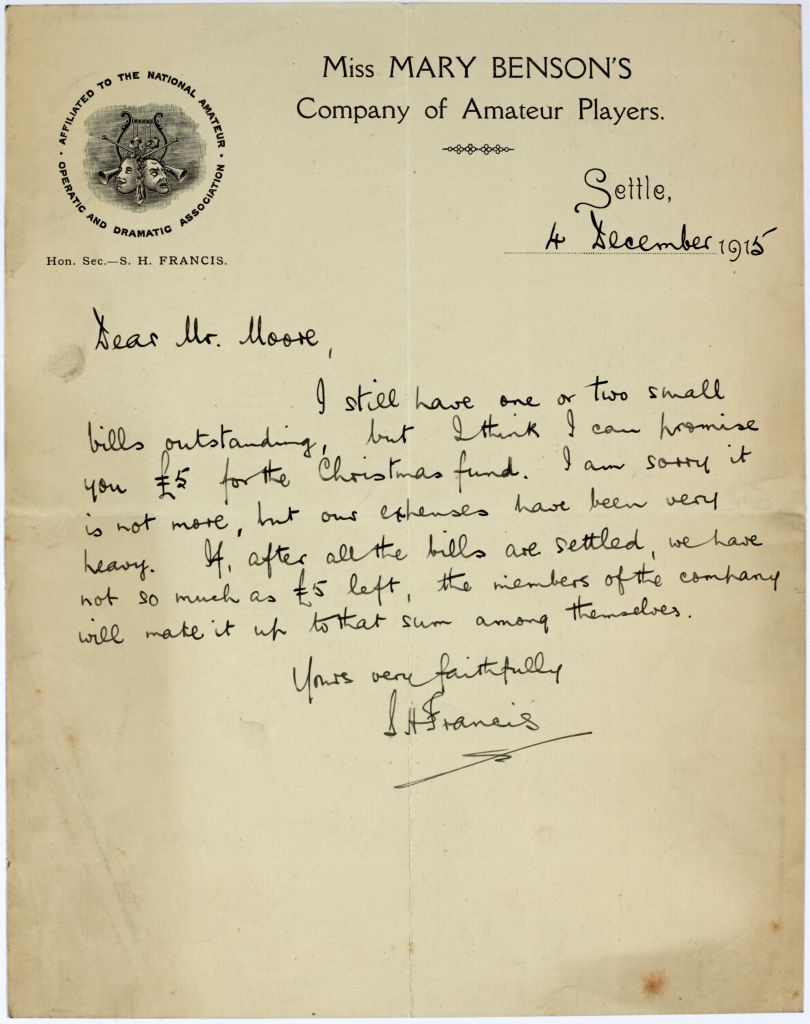 Miss MARY BENSON'S
Company of Amateur Players.
· AFFILIATED TO THE NATIONAL AMATEUR ·
OPERATIC AND DRAMATIC ASSOCIATION
Hon. Sec.—S. H. FRANCIS.
Settle,
4 December 1915
Dear Mr. Moore,
I still have one or two small
bills outstanding, but I think I can promise
you £5 for the Christmas fund. I am sorry it
is not more, but our expenses have been very
heavy. If, after all the bills are settled, we have
not so much as £5 left, the members of the company
will make it up to that sum among themselves.
Yours very faithfully
S H Francis